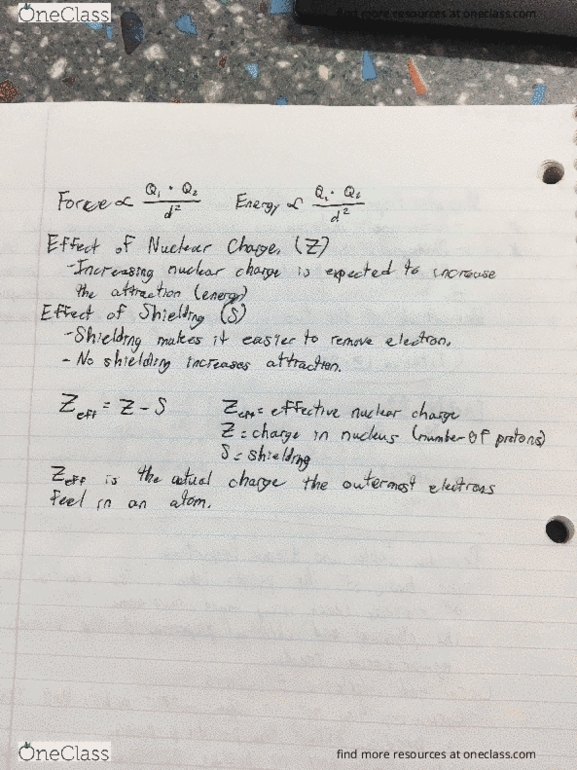 OneClass
find more resources at oneclass.com
Force ∝ Q₁ · Q₂ / d² Energy ∝ Q₁ · Q₂ / d²
Effect of Nuclear Charge, (Z)
-Increasing nuclear charge is expected to increase
the attraction (energy)
Effect of Shielding (S)
-Shielding makes it easier to remove electron.
- No shielding increases attraction.
Zeff = Z - S Zeff = effective nuclear charge
Z = charge in nucleus (number of protons)
S = shielding
Zeff is the actual charge the outermost electrons
feel in an atom.
OneClass
find more resources at oneclass.com